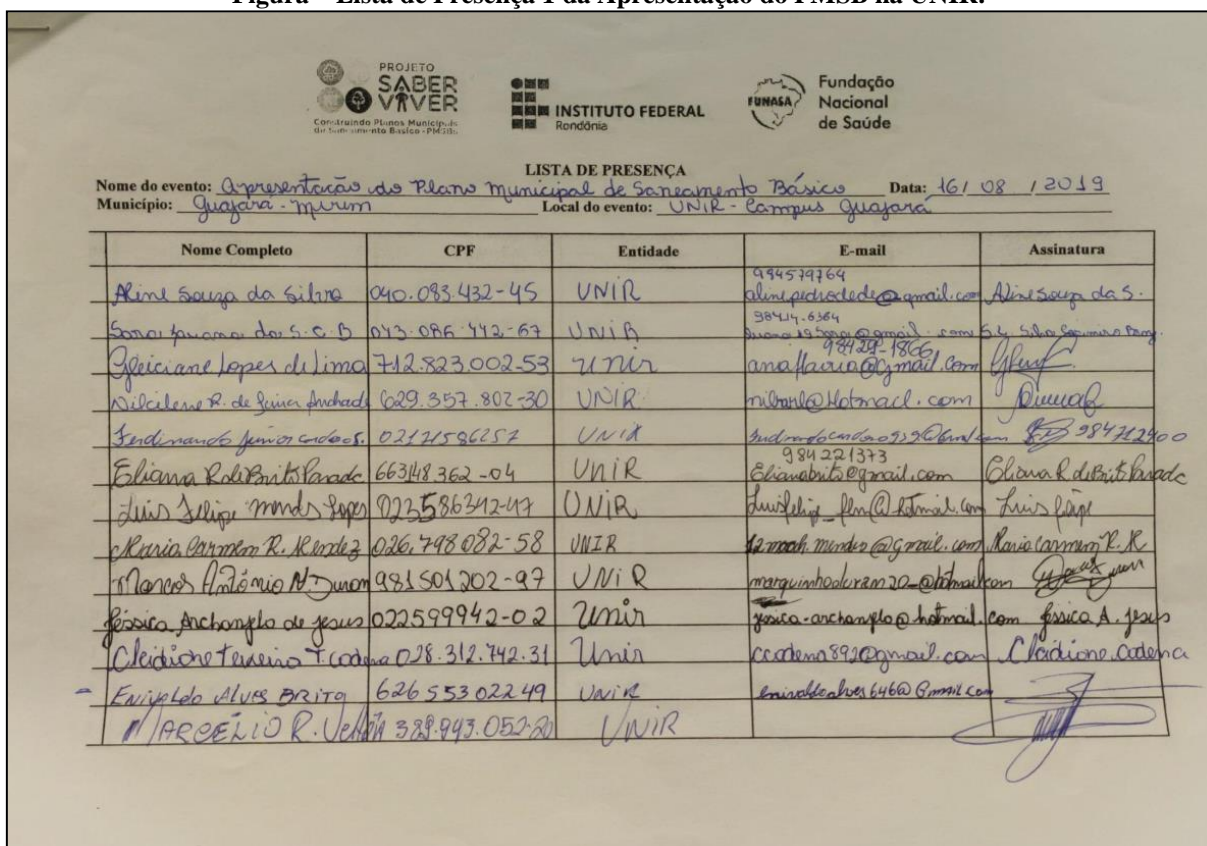 Figura – Lista de Presença 1 da Apresentação do PMSB na UNIR.
PROJETO
SABER
VIVER
Construindo Planos Municipais
de Saneamento Básico - PMSB
INSTITUTO FEDERAL
Rondônia
FUNASA
Fundação
Nacional
de Saúde
LISTA DE PRESENÇA
Nome do evento: Apresentação do Plano Municipal de Saneamento Básico Data: 16/ 08 / 2019
Município: Guajará - Mirim Local do evento: UNIR - Campus Guajará
Nome Completo CPF Entidade E-mail Assinatura
984579764
Aline Souza da Silva 040.083.432-45 UNIR alinepedrodede@gmail.com Aline Souza da S.
98414-6364
Sara Juana da S. C. B 043.086.442-67 UNIR
98429-1866
Gleiciane Lopes de Lima 712.823.002-53 unir anaflavia@gmail.com
Nilcilene R. de Andrade 629.357.802-30 UNIR @hotmail.com
Ferdinando Junior 02121586257 UNIR 984712400
984221373
Eliana R de Brito Parada 663148.362-04 UNIR Elianabrito@gmail.com Eliana R de Brito Parada
Luis Felipe mendes Lopes 023586342-47 UNIR Luisfelip_flm@hotmail.com Luis felipe
Maria Carmem R. Mendez 026.798082-58 UNIR mendes@gmail.com Maria Carmem R. M
Marcos Antônio N. Duran 981501202-97 UNIR marquinhoduran20_@hotmail.com
Jéssica Archangelo de jesus 022599942-02 Unir jessica-archangelo@hotmail.com Jéssica A. jesus
Cleidione Teixeira T. Cadena 028.312.742.31 Unir ccadena892@gmail.com Cleidione Cadena
- ENIVALDO ALVES BRITO 626 553022 49 UNIR enivaldoalves646@Gmail.com
MARCÉLIO R. 389.943.052-20 UNIR